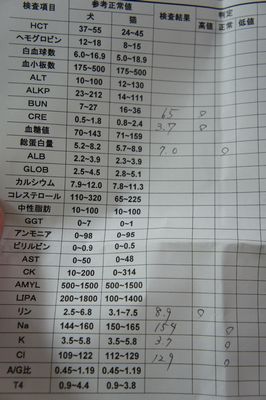 検査項目 参考正常値 検査結果 判定
犬 猫 高値 正常 低値
HCT 37~55 24~45
ヘモグロビン 12~18 8~15
白血球数 6.0~16.9 5.0~18.9
血小板数 175~500 175~500
ALT 10~100 12~130
ALKP 23~212 14~111
BUN 7~27 16~36 65 ○
CRE 0.5~1.8 0.8~2.4 3.7 ○
血糖値 70~143 71~159
総蛋白量 5.2~8.2 5.7~8.9 7.0 ○
ALB 2.2~3.9 2.3~3.9
GLOB 2.5~4.5 2.8~5.1
カルシウム 7.9~12.0 7.8~11.3
コレステロール 110~320 65~225
中性脂肪 10~100 10~100
GGT 0~7 0~1
アンモニア 0~98 0~95
ビリルビン 0~0.9 0~0.5
AST 0~50 0~48
CK 10~200 0~314
AMYL 500~1500 500~1500
LIPA 200~1800 100~1400
リン 2.5~6.8 3.1~7.5 8.9 ○
Na 144~160 150~165 154 ○
K 3.5~5.8 3.5~5.8 3.7 ○
Cl 109~122 112~129 129 ○
A/G比 0.45~1.19 0.45~1.19
T4 0.9~4.4 0.9~3.8